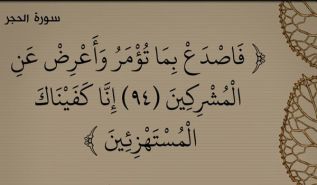 سورة الحجر
﴿ فَاصْدَعْ بِمَا تُؤْمَرُ وَأَعْرِضْ عَنِ
الْمُشْرِكِينَ (٩٤) إِنَّا كَفَيْنَاكَ
الْمُسْتَهْزِئِينَ ﴾